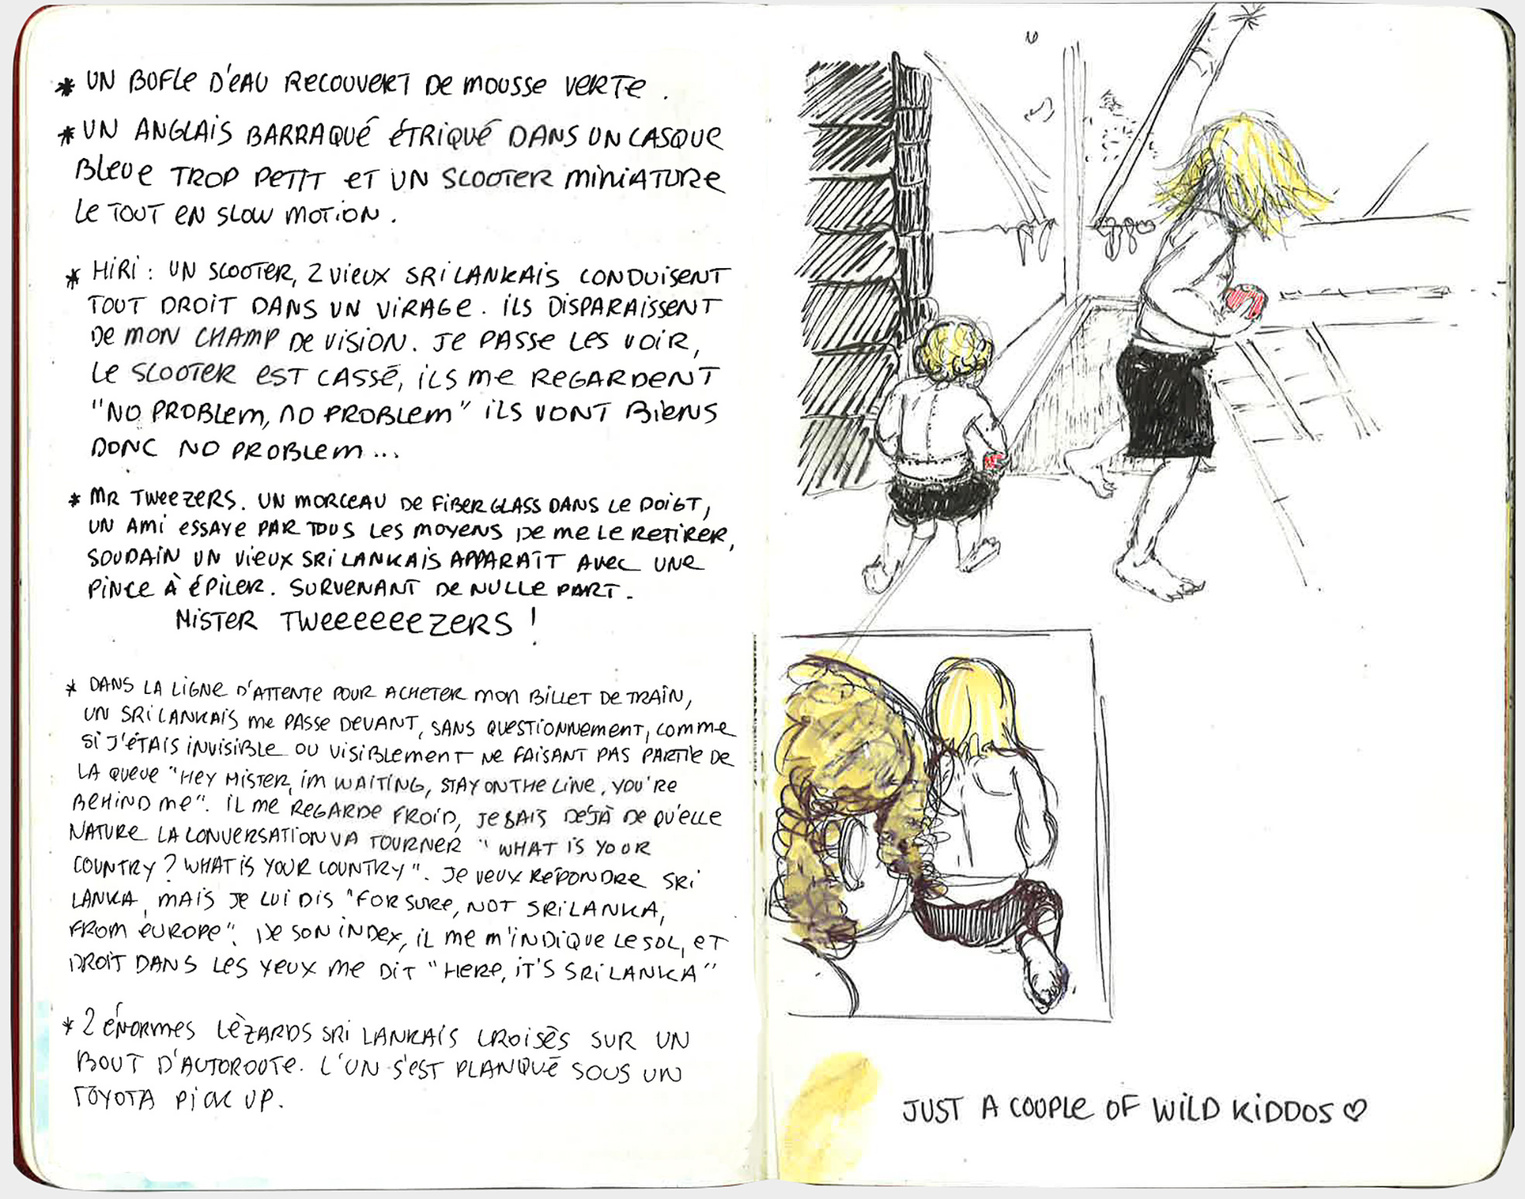 * UN BOFLE D'EAU RECOUVERT DE MOUSSE VERTE.
* UN ANGLAIS BARRAQUÉ ÉTRIQUÉ DANS UN CASQUE
BLEUE TROP PETIT ET UN SCOOTER MINIATURE
LE TOUT EN SLOW MOTION.
* HIRI : UN SCOOTER, 2 VIEUX SRI LANKAIS CONDUISENT
TOUT DROIT DANS UN VIRAGE. ILS DISPARAISSENT
DE MON CHAMP DE VISION. JE PASSE LES VOIR,
LE SCOOTER EST CASSÉ, ILS ME REGARDENT
"NO PROBLEM, NO PROBLEM" ILS VONT BIENS
DONC NO PROBLEM...
* MR TWEEZERS. UN MORCEAU DE FIBERGLASS DANS LE DOIGT,
UN AMI ESSAYE PAR TOUS LES MOYENS DE ME LE RETIRER,
SOUDAIN UN VIEUX SRI LANKAIS APPARAÎT AVEC UNE
PINCE À ÉPILER. SURVENANT DE NULLE PART.
MISTER TWEEEEEEZERS !
* DANS LA LIGNE D'ATTENTE POUR ACHETER MON BILLET DE TRAIN,
UN SRI LANKAIS ME PASSE DEVANT, SANS QUESTIONNEMENT, COMME
SI J'ÉTAIS INVISIBLE OU VISIBLEMENT NE FAISANT PAS PARTIE DE
LA QUEUE "HEY MISTER, IM WAITING, STAY ON THE LINE, YOU'RE
BEHIND ME". IL ME REGARDE FROID, JE SAIS DÉJÀ DE QU'ELLE
NATURE LA CONVERSATION VA TOURNER "WHAT IS YOUR
COUNTRY? WHAT IS YOUR COUNTRY". JE VEUX RÉPONDRE SRI
LANKA, MAIS JE LUI DIS "FOR SURE, NOT SRI LANKA,
FROM EUROPE". DE SON INDEX, IL ME M'INDIQUE LE SOL, ET
DROIT DANS LES YEUX ME DIT "HERE, IT'S SRI LANKA"
* 2 ÉNORMES LÈZARDS SRI LANKAIS CROISÉS SUR UN
BOUT D'AUTOROUTE. L'UN S'EST PLANQUÉ SOUS UN
TOYOTA PICK UP.
JUST A COUPLE OF WILD KIDDOS ♡